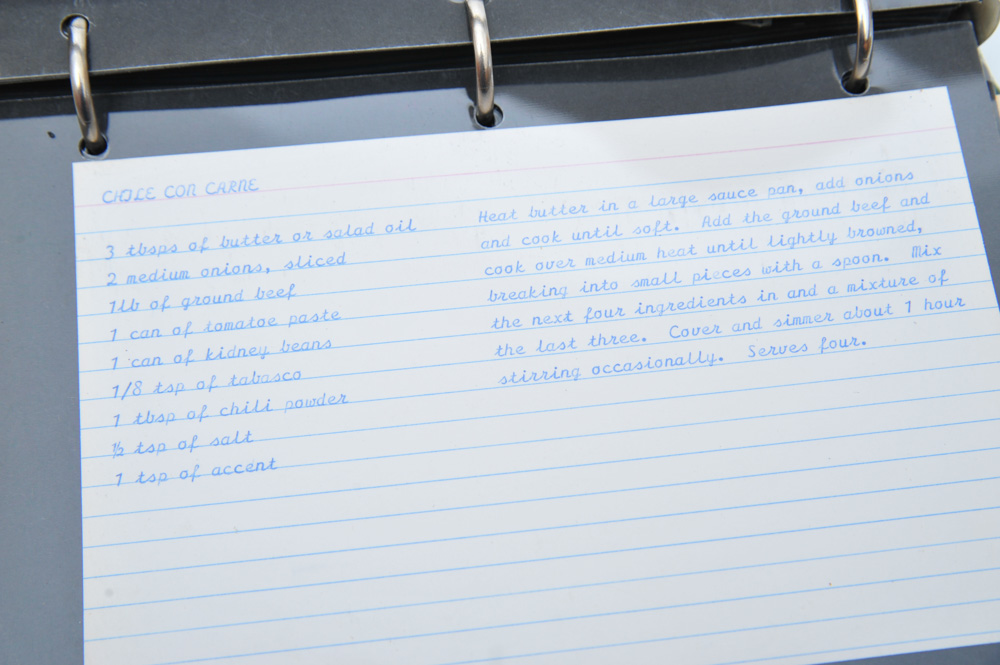 CHILE CON CARNE
3 tbsps of butter or salad oil
2 medium onions, sliced
1lb of ground beef
1 can of tomatoe paste
1 can of kidney beans
1/8 tsp of tabasco
1 tbsp of chili powder
½ tsp of salt
1 tsp of accent
Heat butter in a large sauce pan, add onions
and cook until soft. Add the ground beef and
cook over medium heat until lightly browned,
breaking into small pieces with a spoon. Mix
the next four ingredients in and a mixture of
the last three. Cover and simmer about 1 hour
stirring occasionally. Serves four.